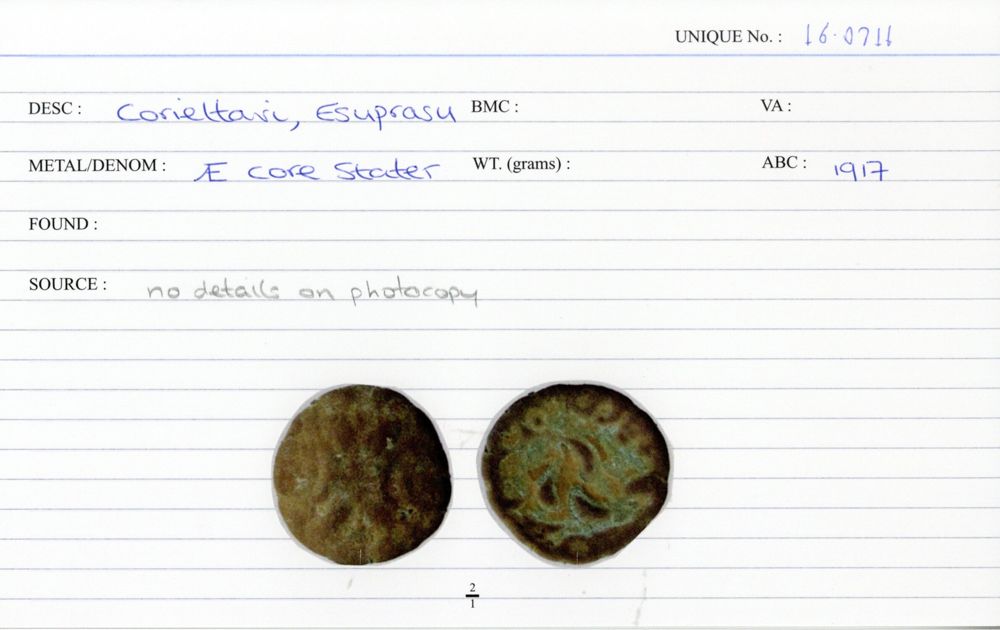 UNIQUE No. : 16.0711
DESC : Corieltavi, Esuprasu BMC : VA :
METAL/DENOM : Æ core Stater WT. (grams) : ABC : 1917
FOUND :
SOURCE : no details on photocopy
2
1